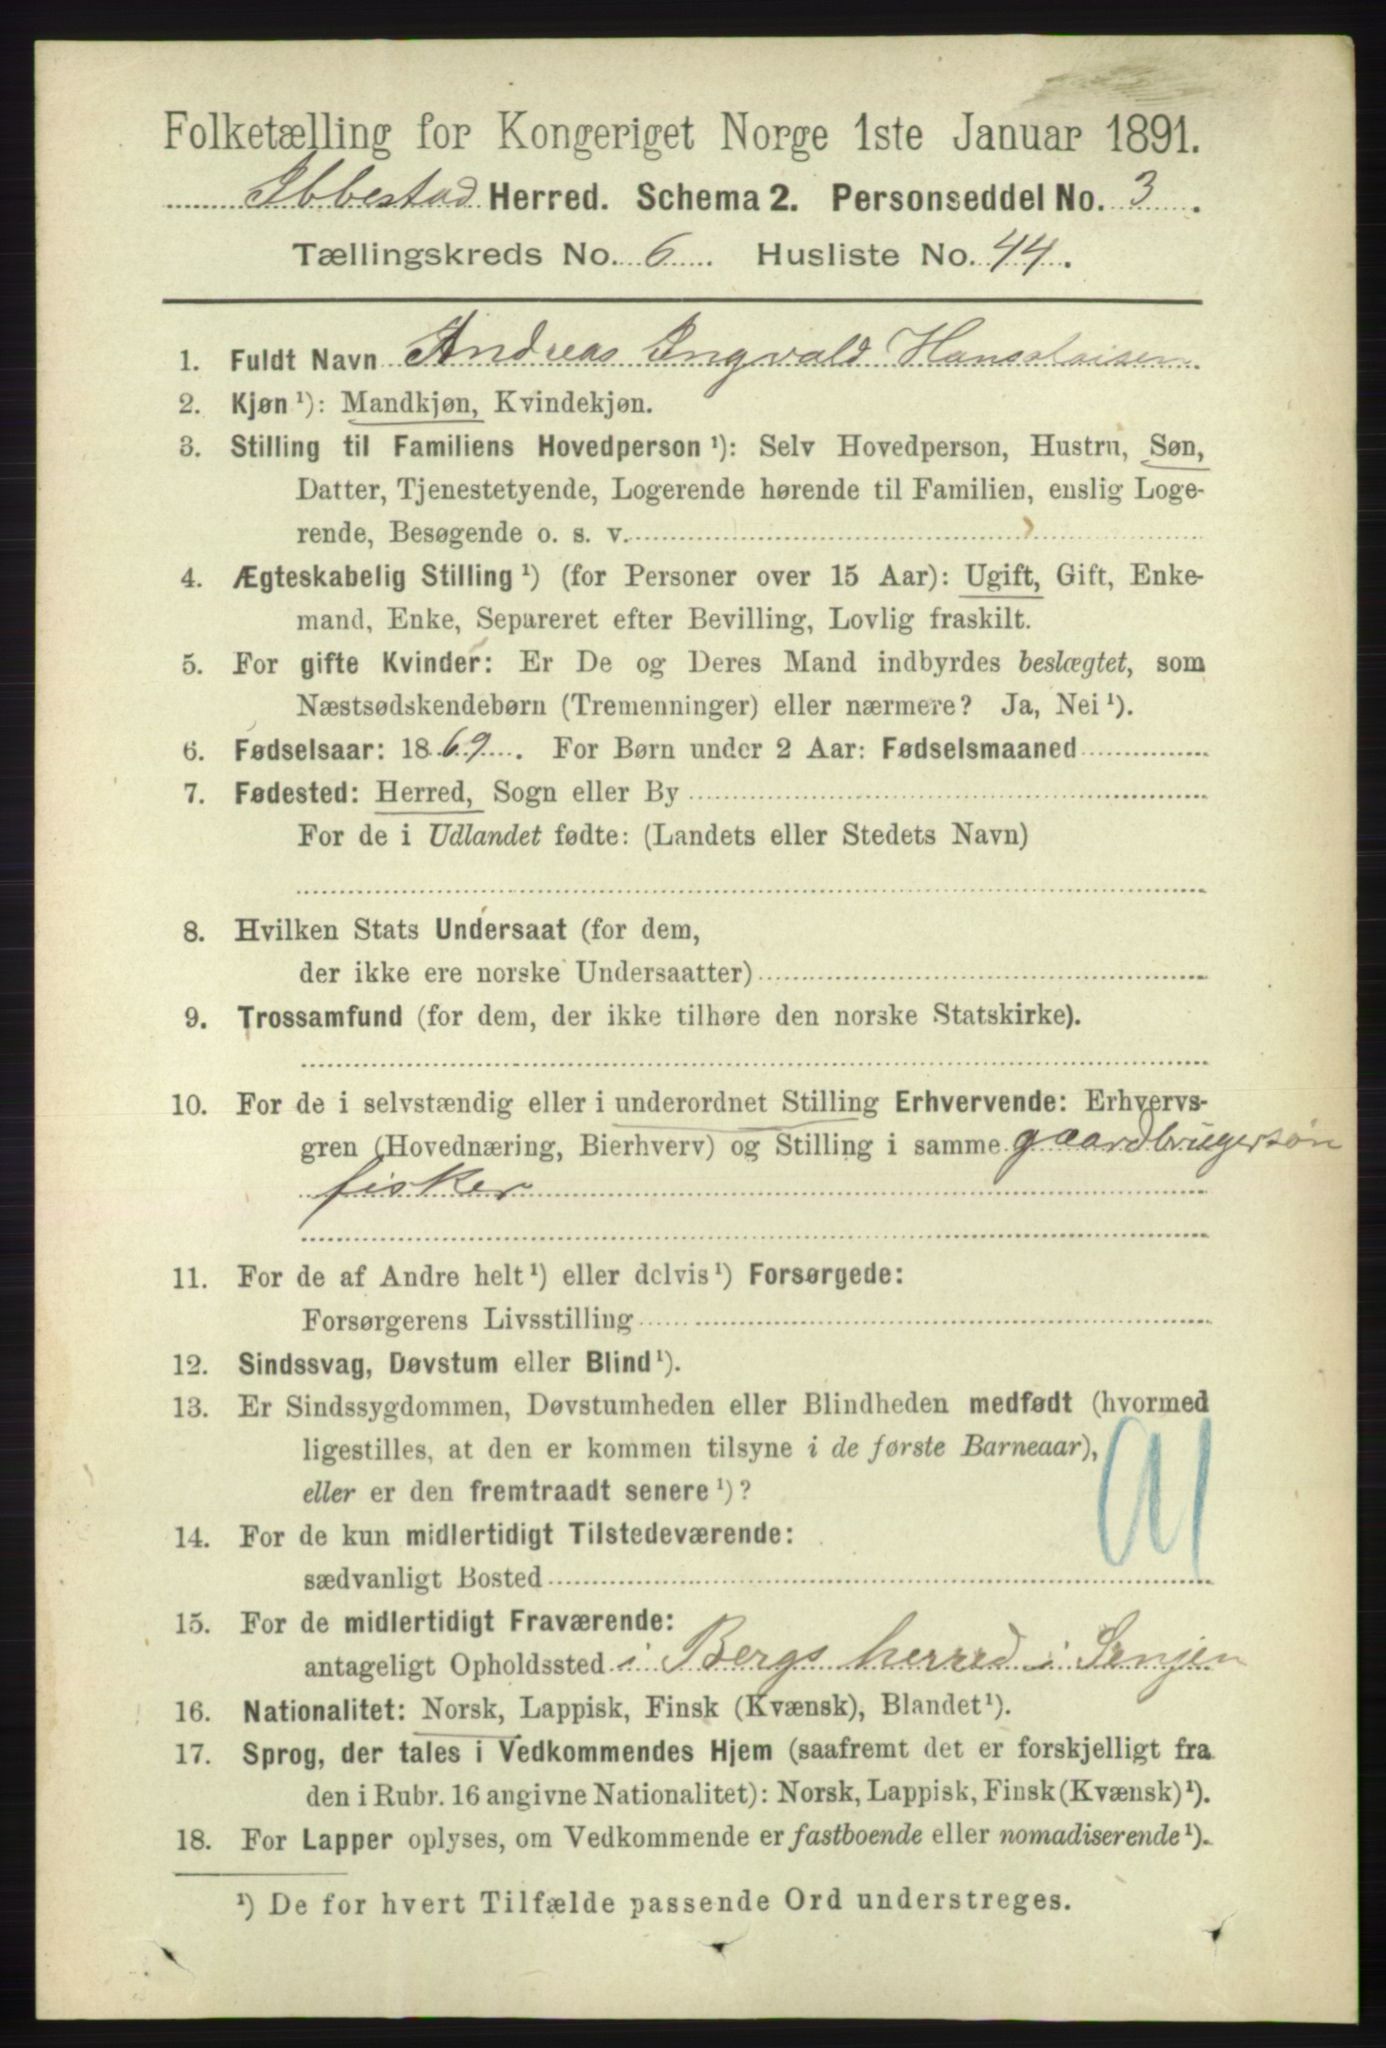 Folketælling for Kongeriget Norge 1ste Januar 1891.
Ibbestad Herred. Schema 2. Personseddel No. 3.
Tællingskreds No. 6. Husliste No. 44.
1. Fuldt Navn Andreas Ingvald
2. Kjøn ¹): Mandkjøn, Kvindekjøn.
3. Stilling til Familiens Hovedperson ¹): Selv Hovedperson, Hustru, Søn,
Datter, Tjenestetyende, Logerende hørende til Familien, enslig Loge-
rende, Besøgende o. s. v.
4. Ægteskabelig Stilling ¹) (for Personer over 15 Aar): Ugift, Gift, Enke-
mand, Enke, Separeret efter Bevilling, Lovlig fraskilt.
5. For gifte Kvinder: Er De og Deres Mand indbyrdes beslægtet, som
Næstsødskendebørn (Tremenninger) eller nærmere? Ja, Nei ¹).
6. Fødselsaar: 1869. For Børn under 2 Aar: Fødselsmaaned
7. Fødested: Herred, Sogn eller By
For de i Udlandet fødte: (Landets eller Stedets Navn)
8. Hvilken Stats Undersaat (for dem,
der ikke ere norske Undersaatter)
9. Trossamfund (for dem, der ikke tilhøre den norske Statskirke).
10. For de i selvstændig eller i underordnet Stilling Erhvervende: Erhvervs-
gren (Hovednæring, Bierhverv) og Stilling i samme gaardbrugersøn
fisker
11. For de af Andre helt ¹) eller delvis ¹) Forsørgede:
Forsørgerens Livsstilling
12. Sindssvag, Døvstum eller Blind ¹).
13. Er Sindssygdommen, Døvstumheden eller Blindheden medfødt (hvormed
ligestilles, at den er kommen tilsyne i de første Barneaar),
eller er den fremtraadt senere ¹)?
14. For de kun midlertidigt Tilstedeværende:
sædvanligt Bosted
15. For de midlertidigt Fraværende:
antageligt Opholdssted i Bergs herred i Senjen
16. Nationalitet: Norsk, Lappisk, Finsk (Kvænsk), Blandet ¹).
17. Sprog, der tales i Vedkommendes Hjem (saafremt det er forskjelligt fra
den i Rubr. 16 angivne Nationalitet): Norsk, Lappisk, Finsk (Kvænsk) ¹).
18. For Lapper oplyses, om Vedkommende er fastboende eller nomadiserende ¹).
¹) De for hvert Tilfælde passende Ord understreges.